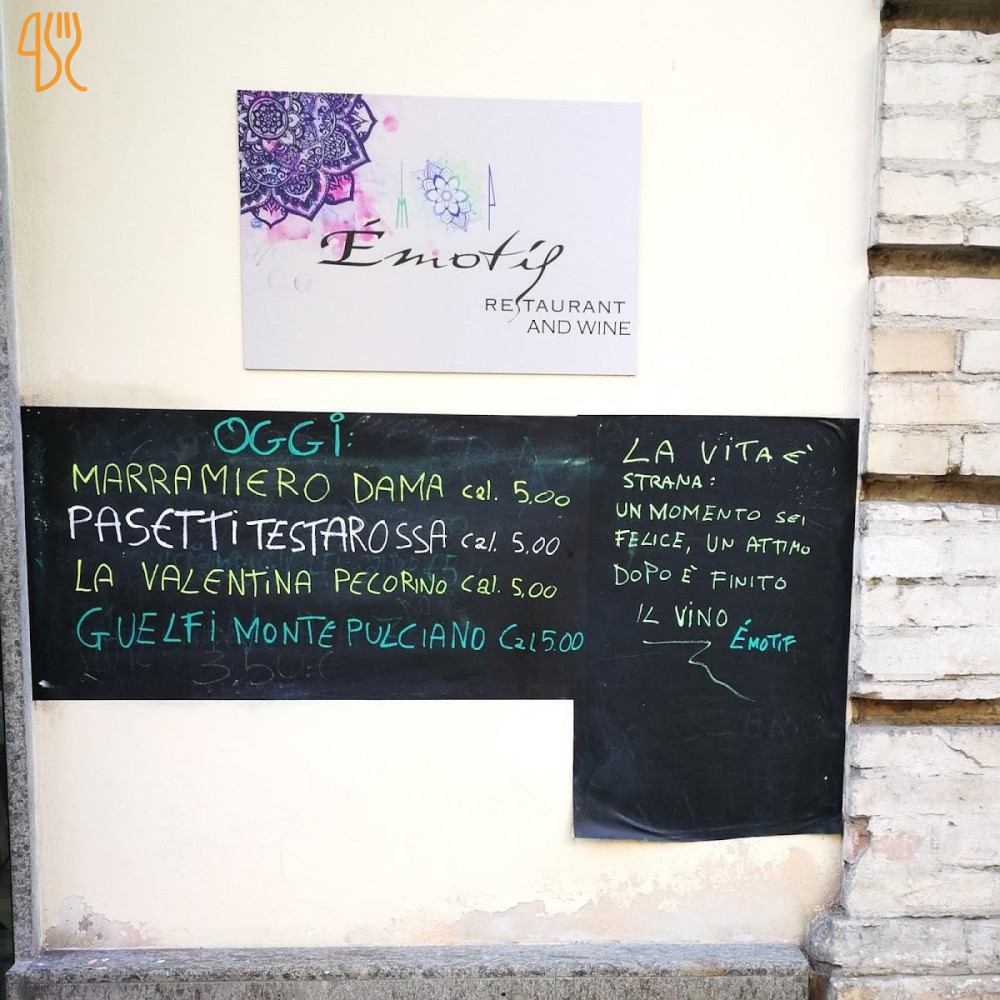 Émotif
RESTAURANT
AND WINE
OGGI:
MARRAMIERO DAMA cal. 5,00
PASETTI TESTAROSSA cal. 5,00
LA VALENTINA PECORINO cal. 5,00
GUELFI MONTEPULCIANO Cal 5.00
3,50
LA VITA È
STRANA:
UN MOMENTO SEI
FELICE, UN ATTIMO
DOPO È FINITO
IL VINO
ÉMOTIF